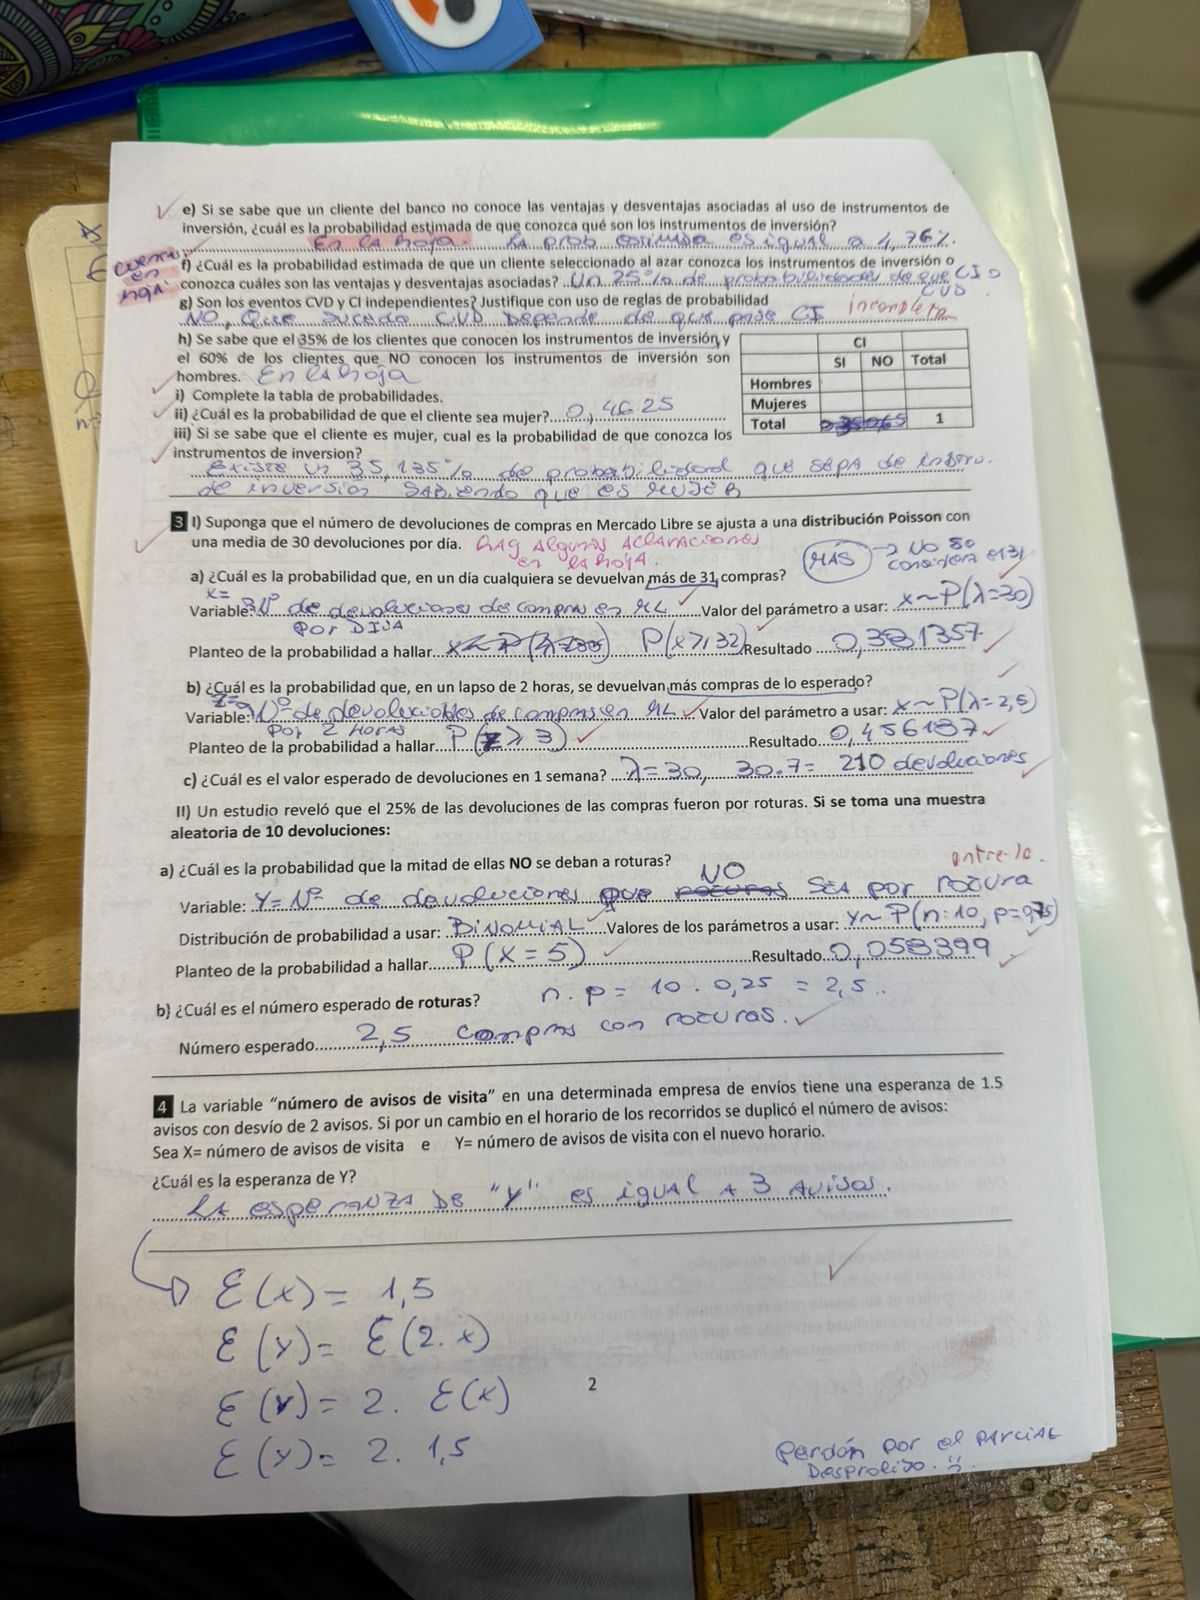 e) Si se sabe que un cliente del banco no conoce las ventajas y desventajas asociadas al uso de instrumentos de
inversión, ¿cuál es la probabilidad estimada de que conozca qué son los instrumentos de inversión?
En la hoja. La prob estimada es igual a 1,76%.
cuentas en hoja
f) ¿Cuál es la probabilidad estimada de que un cliente seleccionado al azar conozca los instrumentos de inversión o
conozca cuáles son las ventajas y desventajas asociadas? Un 25% de probabilidades de que CI o CVD.
g) Son los eventos CVD y CI independientes? Justifique con uso de reglas de probabilidad
NO, Que suceda CVD Depende de que pase CI incompleta
h) Se sabe que el 35% de los clientes que conocen los instrumentos de inversión y
el 60% de los clientes que NO conocen los instrumentos de inversión son
hombres. En la hoja
CI
SI NO Total
Hombres
Mujeres
Total 1
i) Complete la tabla de probabilidades.
ii) ¿Cuál es la probabilidad de que el cliente sea mujer? 0,4625
iii) Si se sabe que el cliente es mujer, cual es la probabilidad de que conozca los
instrumentos de inversion?
Existe un 35,135% de probabilidad que sepa de instru.
de inversión sabiendo que es mujer
3 I) Suponga que el número de devoluciones de compras en Mercado Libre se ajusta a una distribución Poisson con
una media de 30 devoluciones por día. Hay algunas aclaraciones
en la hoja.
MÁS → no se
considera el 31
a) ¿Cuál es la probabilidad que, en un día cualquiera se devuelvan más de 31 compras?
x=
Variable: Nº de devoluciones de compras en ML Valor del parámetro a usar: x~P(λ=30)
por DIJA
Planteo de la probabilidad a hallar P(x≥32) Resultado 0,381357
b) ¿Cuál es la probabilidad que, en un lapso de 2 horas, se devuelvan más compras de lo esperado?
Variable: Nº de devoluciones de compras en ML Valor del parámetro a usar: x~P(λ=2,5)
por 2 horas
Planteo de la probabilidad a hallar P(z≥3) Resultado 0,456187
c) ¿Cuál es el valor esperado de devoluciones en 1 semana? λ=30, 30.7= 210 devoluciones
II) Un estudio reveló que el 25% de las devoluciones de las compras fueron por roturas. Si se toma una muestra
aleatoria de 10 devoluciones:
a) ¿Cuál es la probabilidad que la mitad de ellas NO se deban a roturas?
entre 10.
NO
Variable: Y= Nº de devoluciones que sea por rotura
Distribución de probabilidad a usar: BINOMIAL Valores de los parámetros a usar: Y~P(n:10, p=0,75)
Planteo de la probabilidad a hallar P(x=5) Resultado 0,058399
b) ¿Cuál es el número esperado de roturas? n.p= 10.0,25 = 2,5.
Número esperado 2,5 compras con roturas.
4 La variable “número de avisos de visita” en una determinada empresa de envíos tiene una esperanza de 1.5
avisos con desvío de 2 avisos. Si por un cambio en el horario de los recorridos se duplicó el número de avisos:
Sea X= número de avisos de visita e Y= número de avisos de visita con el nuevo horario.
¿Cuál es la esperanza de Y?
La esperanza de "Y" es igual a 3 avisos.
E(x)= 1,5
E(y)= E(2.x)
E(y)= 2. E(x)
E(y)= 2. 1,5
2
Perdón por el parcial
Desprolijo.